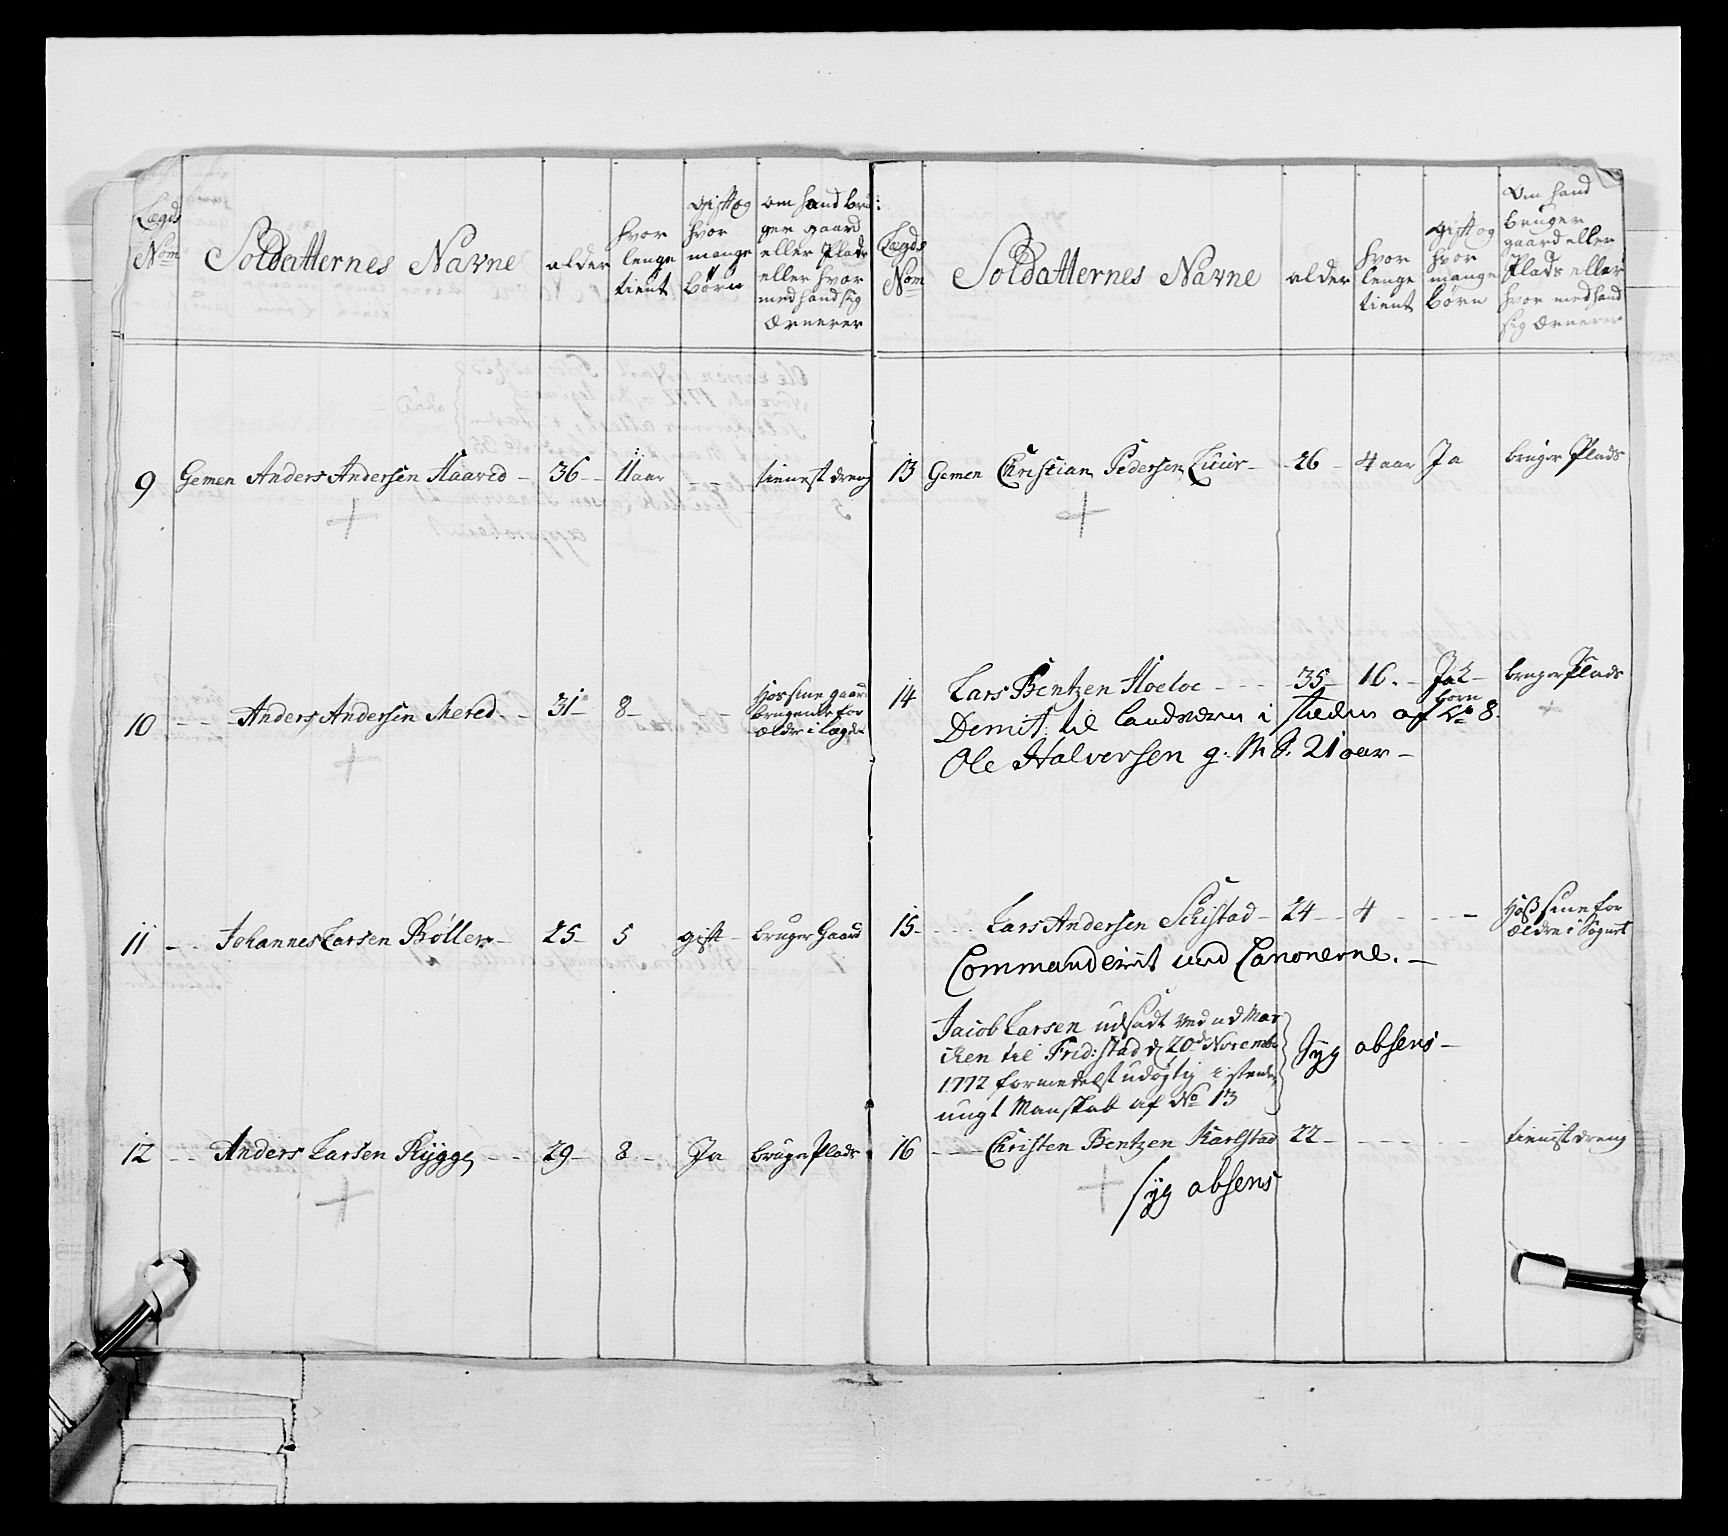 Lægds Nom
Soldatternes Navne
alder
hvor lenge tient
gift og hvor mange börn
om hand bru:
ger gaard
eller Plads
eller hvor
med hand sig
Ærnerer
9 Gemen Anders Andersen Haaved - 36 - 11 aar - - tienest dreng
10 - - Anders Andersen Mered - 31 - 8 - - Hos sine gaard
brugende for
ældre i lægdet
11 - - Johannes Larsen Böller - 25 - 5 gift - bruger Gaard
12 - - Anders Larsen Rygge - - 29 - 8 - Ja bruger Plads
Lægds Nom
Soldatternes Navne
alder
hvor lenge tient
gift og hvor mange börn
Om hand
bruger
gaard eller
Plads eller
hvor med hand
sig Ærnerer
13 Gemen Christian Pedersen - 26 - 4 aar Ja bruger Plads
14 Lars Bentzen Hoeloe - - - 35 - 16. - Ja 2 - bruger Plads
börn
Demit: til landværn i steden af No 8.
Ole Halversen g: M S. 21 aar -
15 - - - Lars Andersen Schistad - 24 - - 4 - - - Hoß sine for
ældre i Sognet
Commandeirit ved Canonerne. -
Jacob Larsen udsadt ved ud Mar
chen til Frid:stad d 20de Novembr
1772 formedelst udögtig i steden
ungt Manskab af No 13
syg absens -
16 - - - Christen Bentzen Karlstad 22 - - - - tienist dreng
syg absens